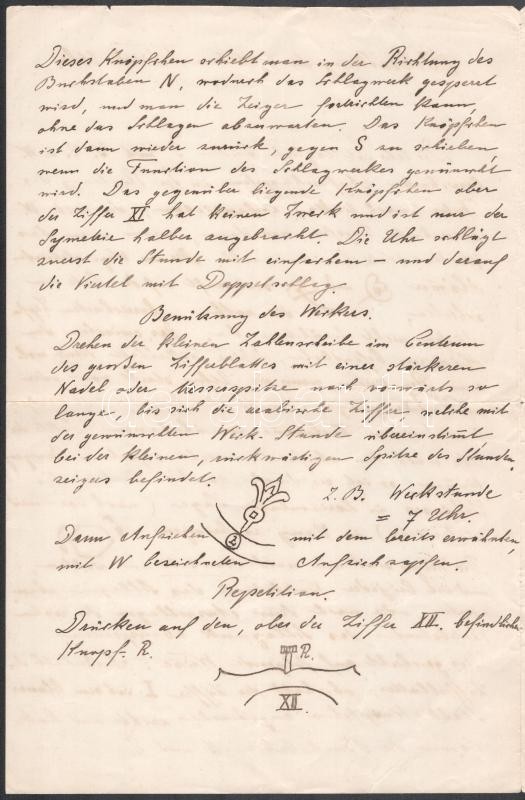 Dieses Knöpfchen schiebt man in der Richtung des
Buchstaben N, wodurch das Schlagwerk gesperrt
wird, und man die Zeiger fortrichten kann,
ohne das Schlagen abzuwarten. Das Knöpfchen
ist dann wieder zurück, gegen S zu schieben,
wenn die Function des Schlagwerkes gewünscht
wird. Das gegenüber liegende Knöpfchen ober
der Ziffer XI hat keinen Zweck und ist nur der
Symetrie halber angebracht. Die Uhr schlägt
zuerst die Stunde mit einfachem – und darauf
die Viertel mit Doppelschlag.
Benützung des Weckers.
Drehen der kleinen Zahlenscheibe im Centrum
des großen Zifferblattes mit einer stärkeren
Nadel oder Messerspitze nach vorwärts so
lange, bis sich die arabische Ziffer welche mit
der gewünschten Weck-Stunde übereinstimt,
bei der kleinen, rückwärtigen Spitze des Stunden
zeigers befindet.
Z. B. Weckstunde
= 7 Uhr.
Dann Aufziehen mit dem bereits erwähnten,
mit W bezeichneten Aufziehzapfen.
Repetition.
Drücken auf den, ober der Ziffer XII. befindlichen
Knopf R.
R.
XII